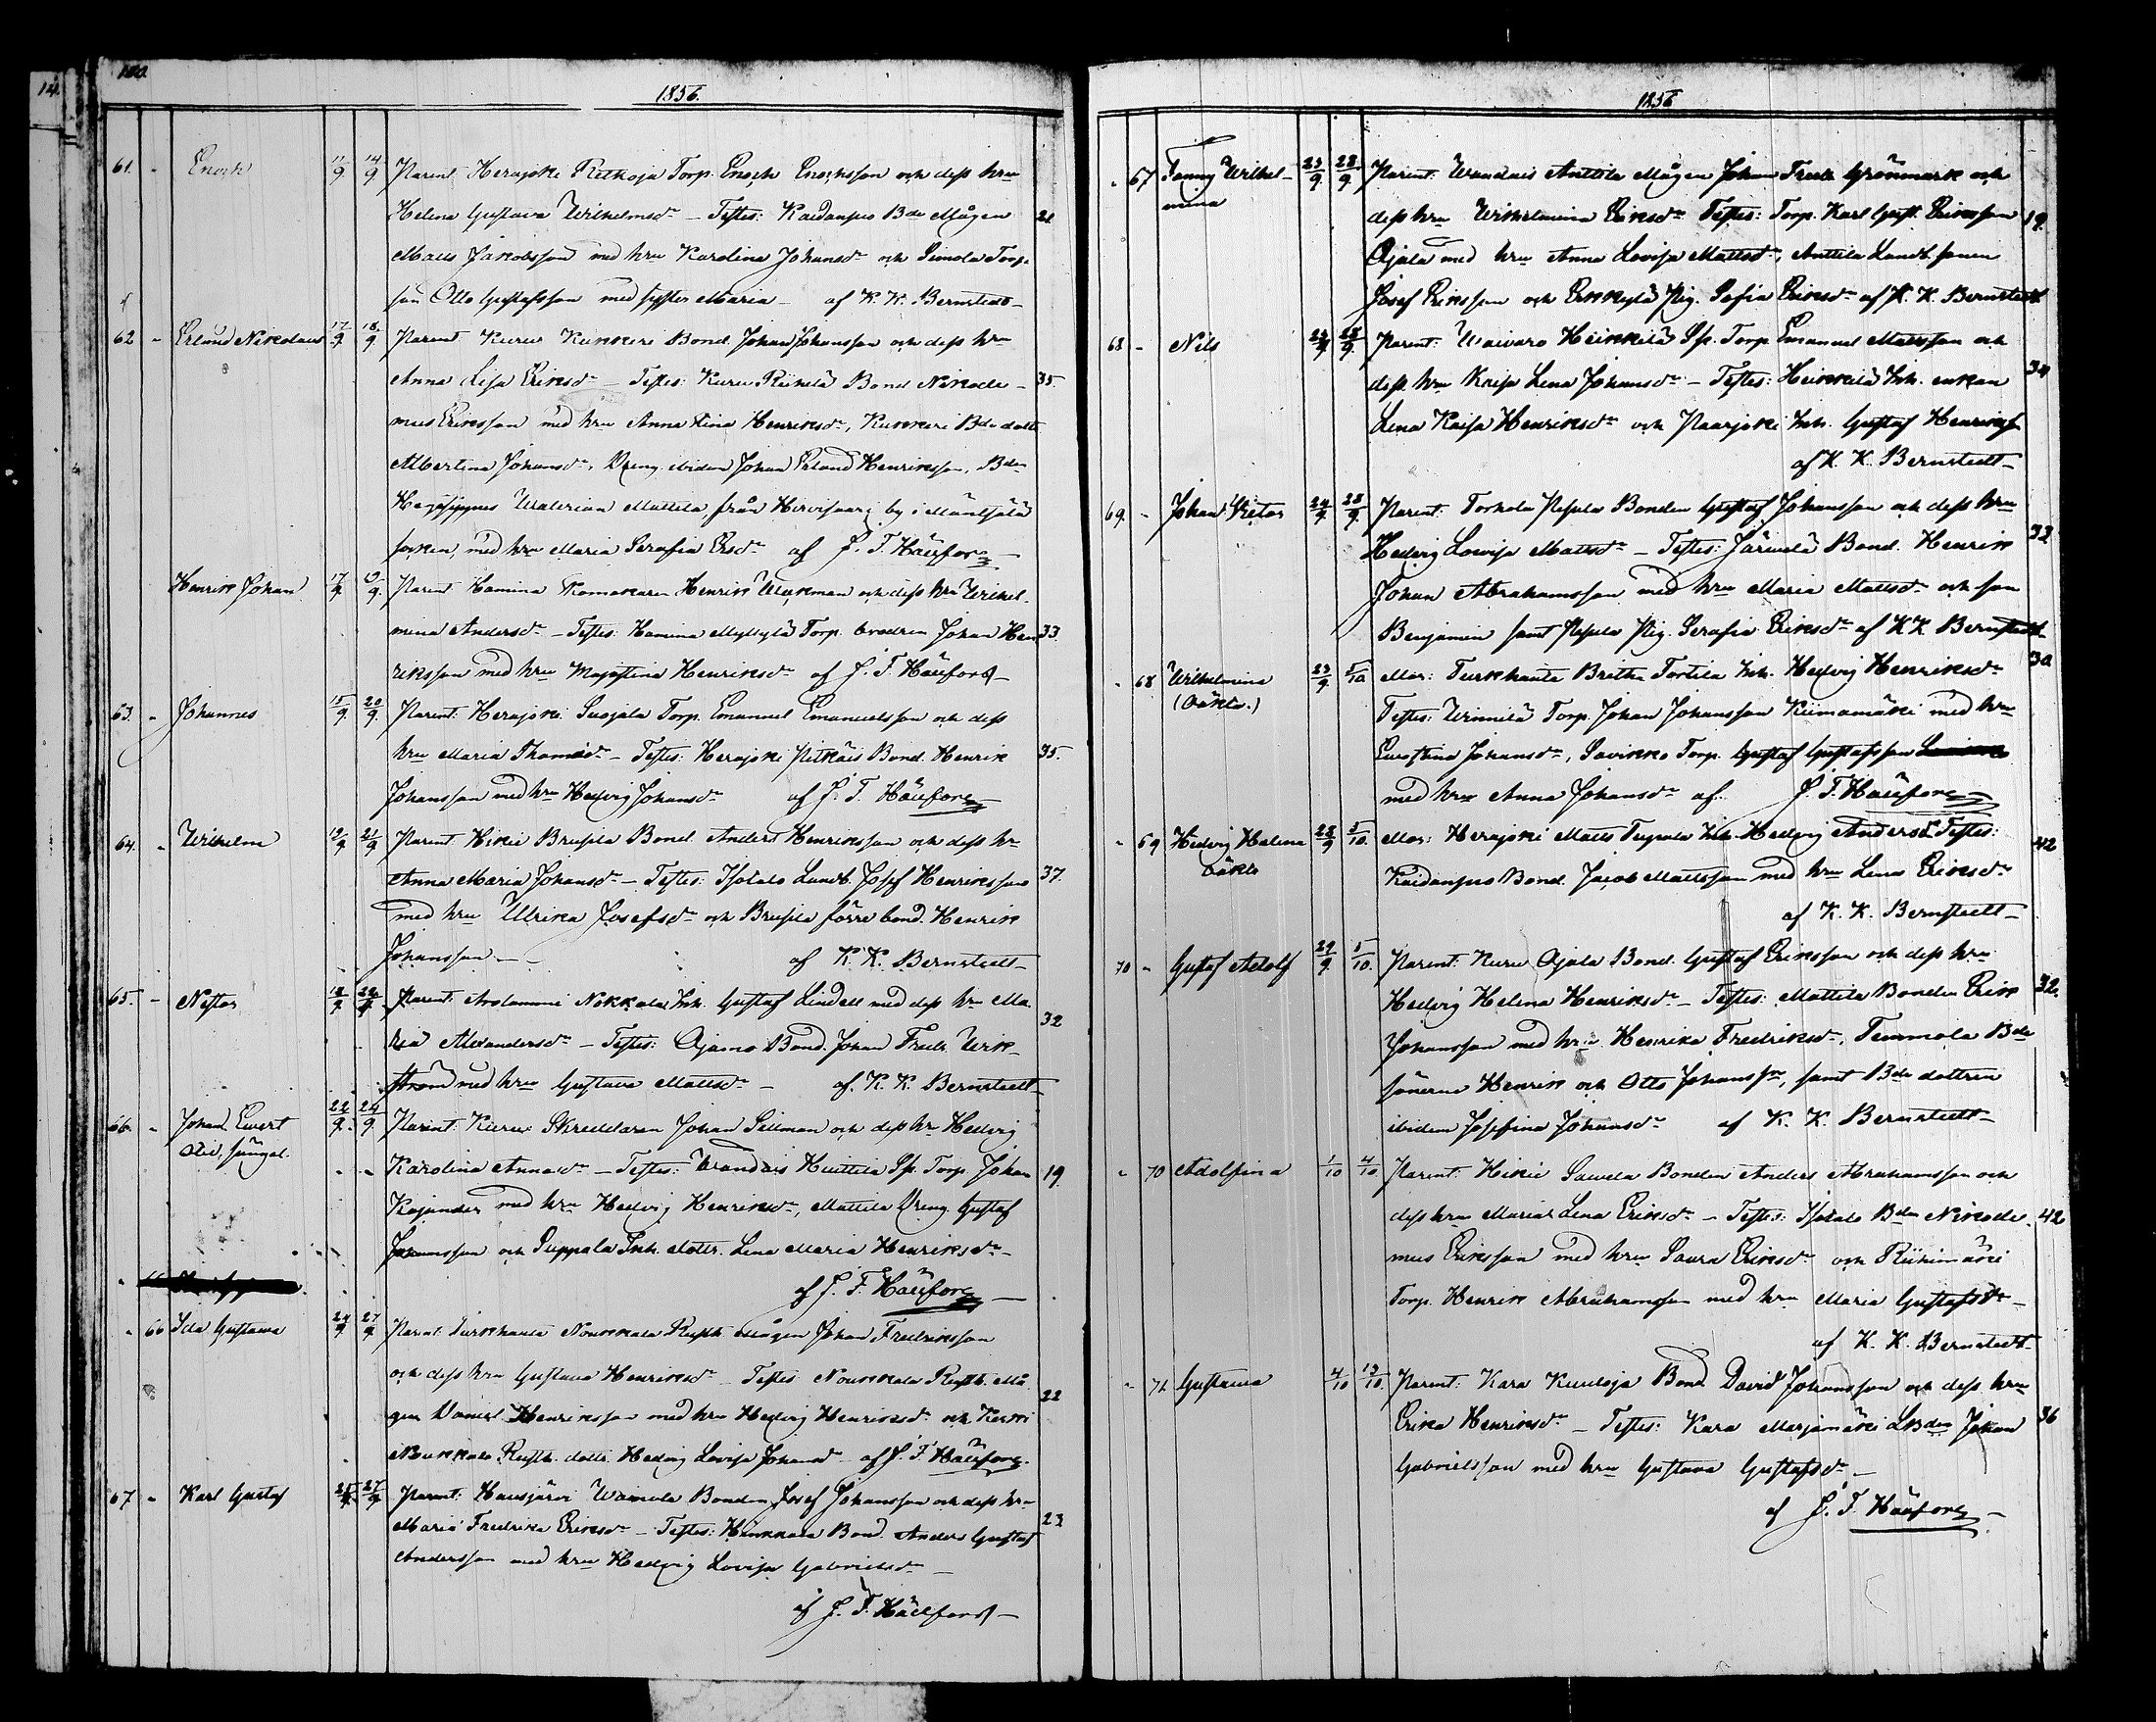 1856.
61. - Enoch 11/9 14/9 Parent Herajoki Ritkoja Torp. Enoch Enochsson och dess hru
Helena Gustava Wilhelmsdr - Testes: Kaidanpää Bde Mågen 21
Matts Jakobsson med hru Karolina Johansdr och Simola Torp.
son Otto Gustafsson med syster Maria - af K. K. Bernstedt -
62 - Erlund Nikolaus 17/9 18/9 Parent Kuru Kunkeri Bond. Johan Johansson och dess hru
Anna Lisa Eriksdr - Testes: Kuru Rikilä Bond Nikode- 35.
mus Eriksson med hru Anna Stina Henriksdr, Kunkeri Bde dottr
Albertina Johansdr, Dreng ibidem Johan Erland Henriksson, Bdn
Walerian Mattila, från Hirvihaara by i Mäntsälä
socken, med hru Maria Serafia Ersdr af J. T. Häufors
Henrik Johan 17/9 19/9 Parent Hamina Skomakaren Henrik Wackman och dess hru Wilhel-
mina Andersdr - Testes: Hamina Myllylä Torp. brodren Johan Hen- 33.
riksson med hru Majastina Henriksdr af J. T. Häufors -
63. - Johannes 15/9 20/9 Parent: Herajoki Susjala Torp. Emanuel Emanuelsson och dess
hru Maria Thomasdr - Testes: Herajoki Pitkäis Bond. Henrik 35.
Johansson med hru Hedvig Johansdr af J. T. Häufors
64. - Wilhelm 19/9 21/9 Parent Hikiä Brusila Bond. Anders Henriksson och dess hr
Anna Maria Johansdr - Testes: Isotalo Landb. Josef Henriksson 37.
med hru Ulrika Josefsdr och Brusila förre bond. Henrik
Johansson - af K. K. Bernstedt -
65. - Nestor 18/9 22/9 Parent: Arolammi Nokkala Inh. Gustaf Lindell med dess hr Ma-
ria Alexandersdr - Testes: Ojamo Bond. Johan Fredr. Wik- 32
ström med hru Gustava Mattsdr - af K. K. Bernstedt -
66. - Johan Evert 22/9 24/9 Parint: Kuru Skreddaren Johan Sillman och dess hr Hedvig
Karolina Annasdr - Testes: Wandais Huittila Sp. Torp. Johan 19.
Kajander med hru Hedvig Henriksdr, Mattila Dreng Gustaf
Johansson och Puppala Inh. dottr. Lena Maria Henriksdr -
af J. T. Häufors -
- 66 Ida Gustava 24/9 27/9 Parint Turkhauta Noukkala Rusth. Mågen Johan Fredriksson
och dess hru Gustava Henriksdr - Testes Noukkala Rusth. Må- 22
gen Daniel Henriksson med hru Hedvig Henriksdr och
Noukkala Rusth. dottr. Hedvig Lovisa Johansdr - af J. T. Häufors.
67. - Karl Gustaf 25/9 27/9 Parent: Hausjärvi Wainola Bonden Josef Johansson och dess hr
Maria Fredrika Eriksdr - Testes: Bond. Anders Gustaf 23
Andersson med hru Hedvig Lovisa Gabrielsdr -
af J. T. Häufors -
1856
- 67 Fanny Wilhel- 23/9 28/9 Parint: Wandais Anttila Mågen Johan Fredr Grönmark och
mina dess hru Wilhelmina Eriksdr Testes: Torp. Karl Gust. Eriksson 19.
Ojala med hru Anna Lovisa Mattsdr, Anttila Landb. sonen
Josef Eriksson och Erkkylä Pig. Sofia Eriksdr af K. K. Bernstedt
68 - Nils 24/9 28/9 Parent: Waivaro Heikkilä Sp. Torp Emanuel Mattsson och
dess hru Kaisa Lena Johansdr - Testes: Heikkilä Inh. enkan 34
Lena Kaisa Henriksdr och Paarjoki Inh. Gustaf Henriksson
af K. K. Bernstedt -
69. - Johan Vietor 24/9 28/9 Parent: Torhola Pesula Bonden Gustaf Johansson och dess hru
Hedvig Lovisa Mattsdr - Testes: Järvelä Bond. Henrik 32
Johan Abrahamsson med hru Maria Mattsdr och son
Benjamin samt Pesula Pig. Serafia Eriksdr af K. K. Bernstedt
- 68 Wilhelmina 23/9 5/10 Mor: Turkhauta Britha Tortila Inh. Hedvig Henriksdr 30
(Oäkta.) Testes: Winnilä Torp. Johan Johansson Kiimamäki med hru
Evastina Johansdr, Savikko Torp. Gustaf Gustafsson
med hru Anna Johansdr af J. T. Häufors
- 69 Hedvig Helena 28/9 5/10 Mor: Herajoki Matts Teppala Inh. Hedvig Andersdr Testes: 42
oäkta Kaidanpää Bond. Jacob Mattsson med hru Lena Eriksdr
af K. K. Bernstedt -
70 - Gustaf Adolf 29/9 5/10 Parint: Kuru Ojala Bond. Gustaf Eriksson och dess hru
Hedvig Helena Henriksdr - Testes: Mattila Bonden Erik 32.
Johansson med hru Henrika Fredriksdr, Temmola Bde
sönerne Henrik och Otto Johanssr, samt Bde dottren
ibidem Josefina Johansdr af K. K. Bernstedt -
- 70 Adolfina 1/10 4/10 Parint: Hikiä Sawela Bonden Anders Abrahamsson och
dess hru Maria Lena Eriksdr - Testes: Isotalo Bdn Nikode- 42
mus Eriksson med hru Laura Eriksdr och Riihimäki
Torp. Henrik Abrahamsson med hru Maria Gustafsdr -
af K. K. Bernstedt -
- 71 Gustava 4/10 13/10 Parint: Kara Kuuloja Bond David Johansson och dess hru
Erika Henriksdr - Testes: Kara Marjamäki Bdn Johan 36
Gabrielsson med hru Gustava Gustafsdr -
af J. T. Häufors -